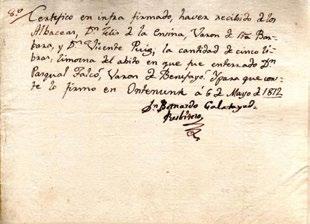 8º
Certefico en infra firmado, haver recibido de los
Albaceas, Dn Felis de la Encina, Varon de Sta Bar-
bara, y Dn Vicente Puig, la cantidad de cinco li-
bras, limosna del abito en que fue enterrado Dn
Pasqual Falcó, Varon de Benifayó. Y para que cons-
te lo firmo en Ontenient á 6 de Mayo d 1812
Dn Bernardo Calatayud